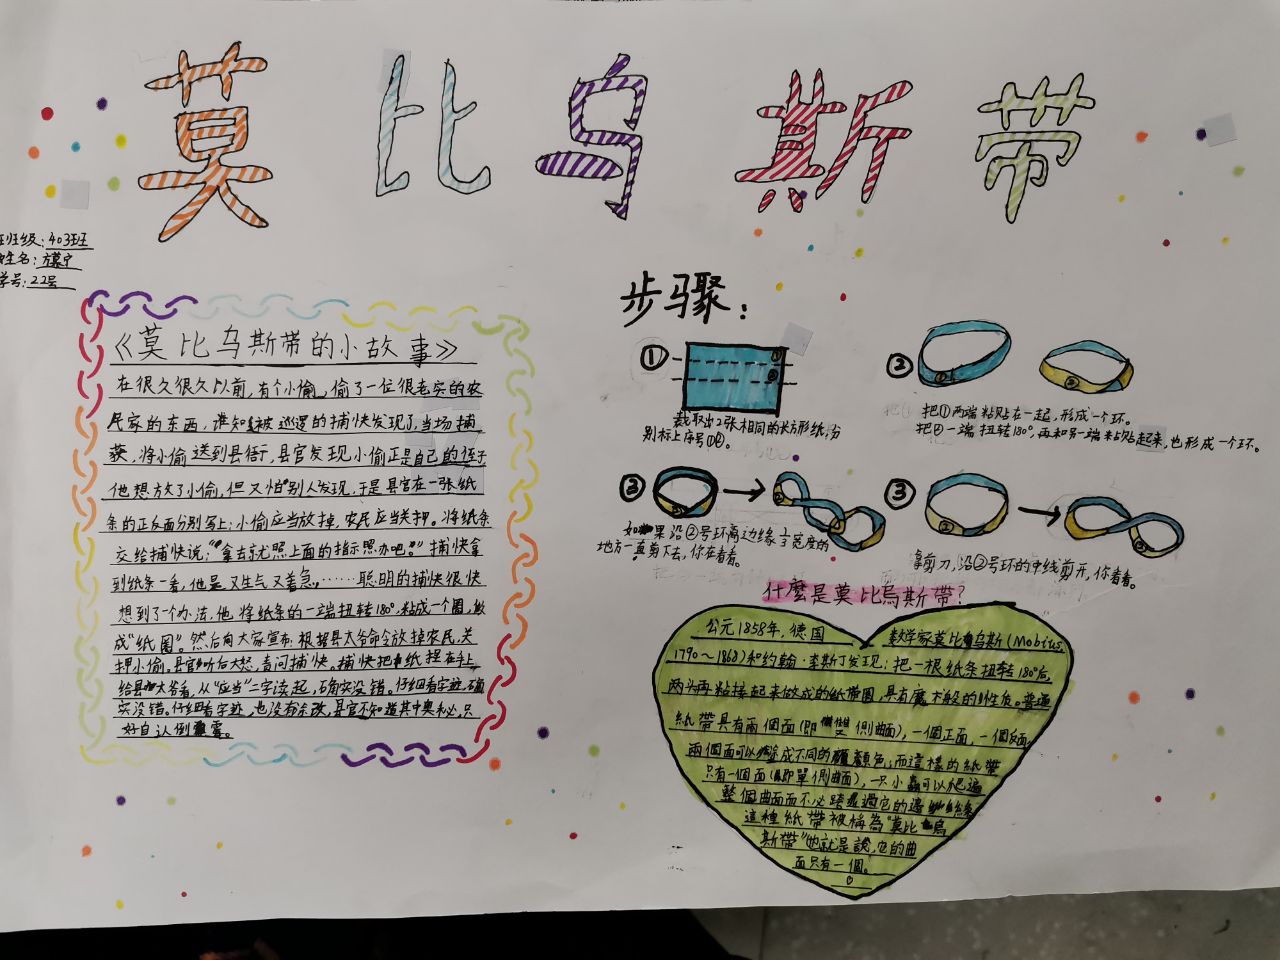 莫比乌斯带
班级:403班
姓名:方
学号:22号
《莫比乌斯带的小故事》
在很久很久以前,有个小偷,偷了一位很老实的农
民家的东西,谁知被巡逻的捕快发现了,当场捕
获,将小偷送到县衙,县官发现小偷正是自己的侄子
他想放了小偷,但又怕别人发现,于是县官在一张纸
条的正反面分别写上:小偷应当放掉,农民应当关押。将纸条
交给捕快说:"拿去就照上面的指示照办吧。"捕快拿
到纸条一看,他是又生气又着急。……聪明的捕快很快
想到了一个办法,他将纸条的一端扭转180°,粘成一个圈,做
成"纸圈"。然后向大家宣布:根据县太爷命令放掉农民,关
押小偷。县官听后大怒,责问捕快。捕快把纸捏在手上
给县太爷看,从"应当"二字读起,确实没错。仔细看字迹,确
实没错。仔细看字迹,也没有涂改,县官不知道其中奥秘,只
好自认倒霉。
步骤:
①
①
②
裁取出2张相同的长方形纸,分
别标上序号①②。
②
①
②
把①两端粘贴在一起,形成一个环。
把②一端扭转180°,再和另一端粘贴起来,也形成一个环。
③
如果沿②号环离边缘⅓宽度的
地方一直剪下去,你在看看。
③
拿剪刀,沿②号环的中线剪开,你看看。
什麼是莫比烏斯帶?
公元1858年,德国数学家莫比乌斯(Mobius,
1790~1868)和约翰·李斯丁发现:把一根纸条扭转180°后,
两头再粘接起来做成的纸带圈,具有魔术般的性质。普通
紙帶具有兩個面(即雙側曲面),一個正面,一個反面,
兩個面可以塗成不同的顏色;而這樣的紙帶
只有一個面(即單側曲面),一只小蟲可以爬遍
整個曲面而不必跨過它的邊緣
這種紙帶被稱為"莫比烏
斯帶"也就是說,它的曲
面只有一個。